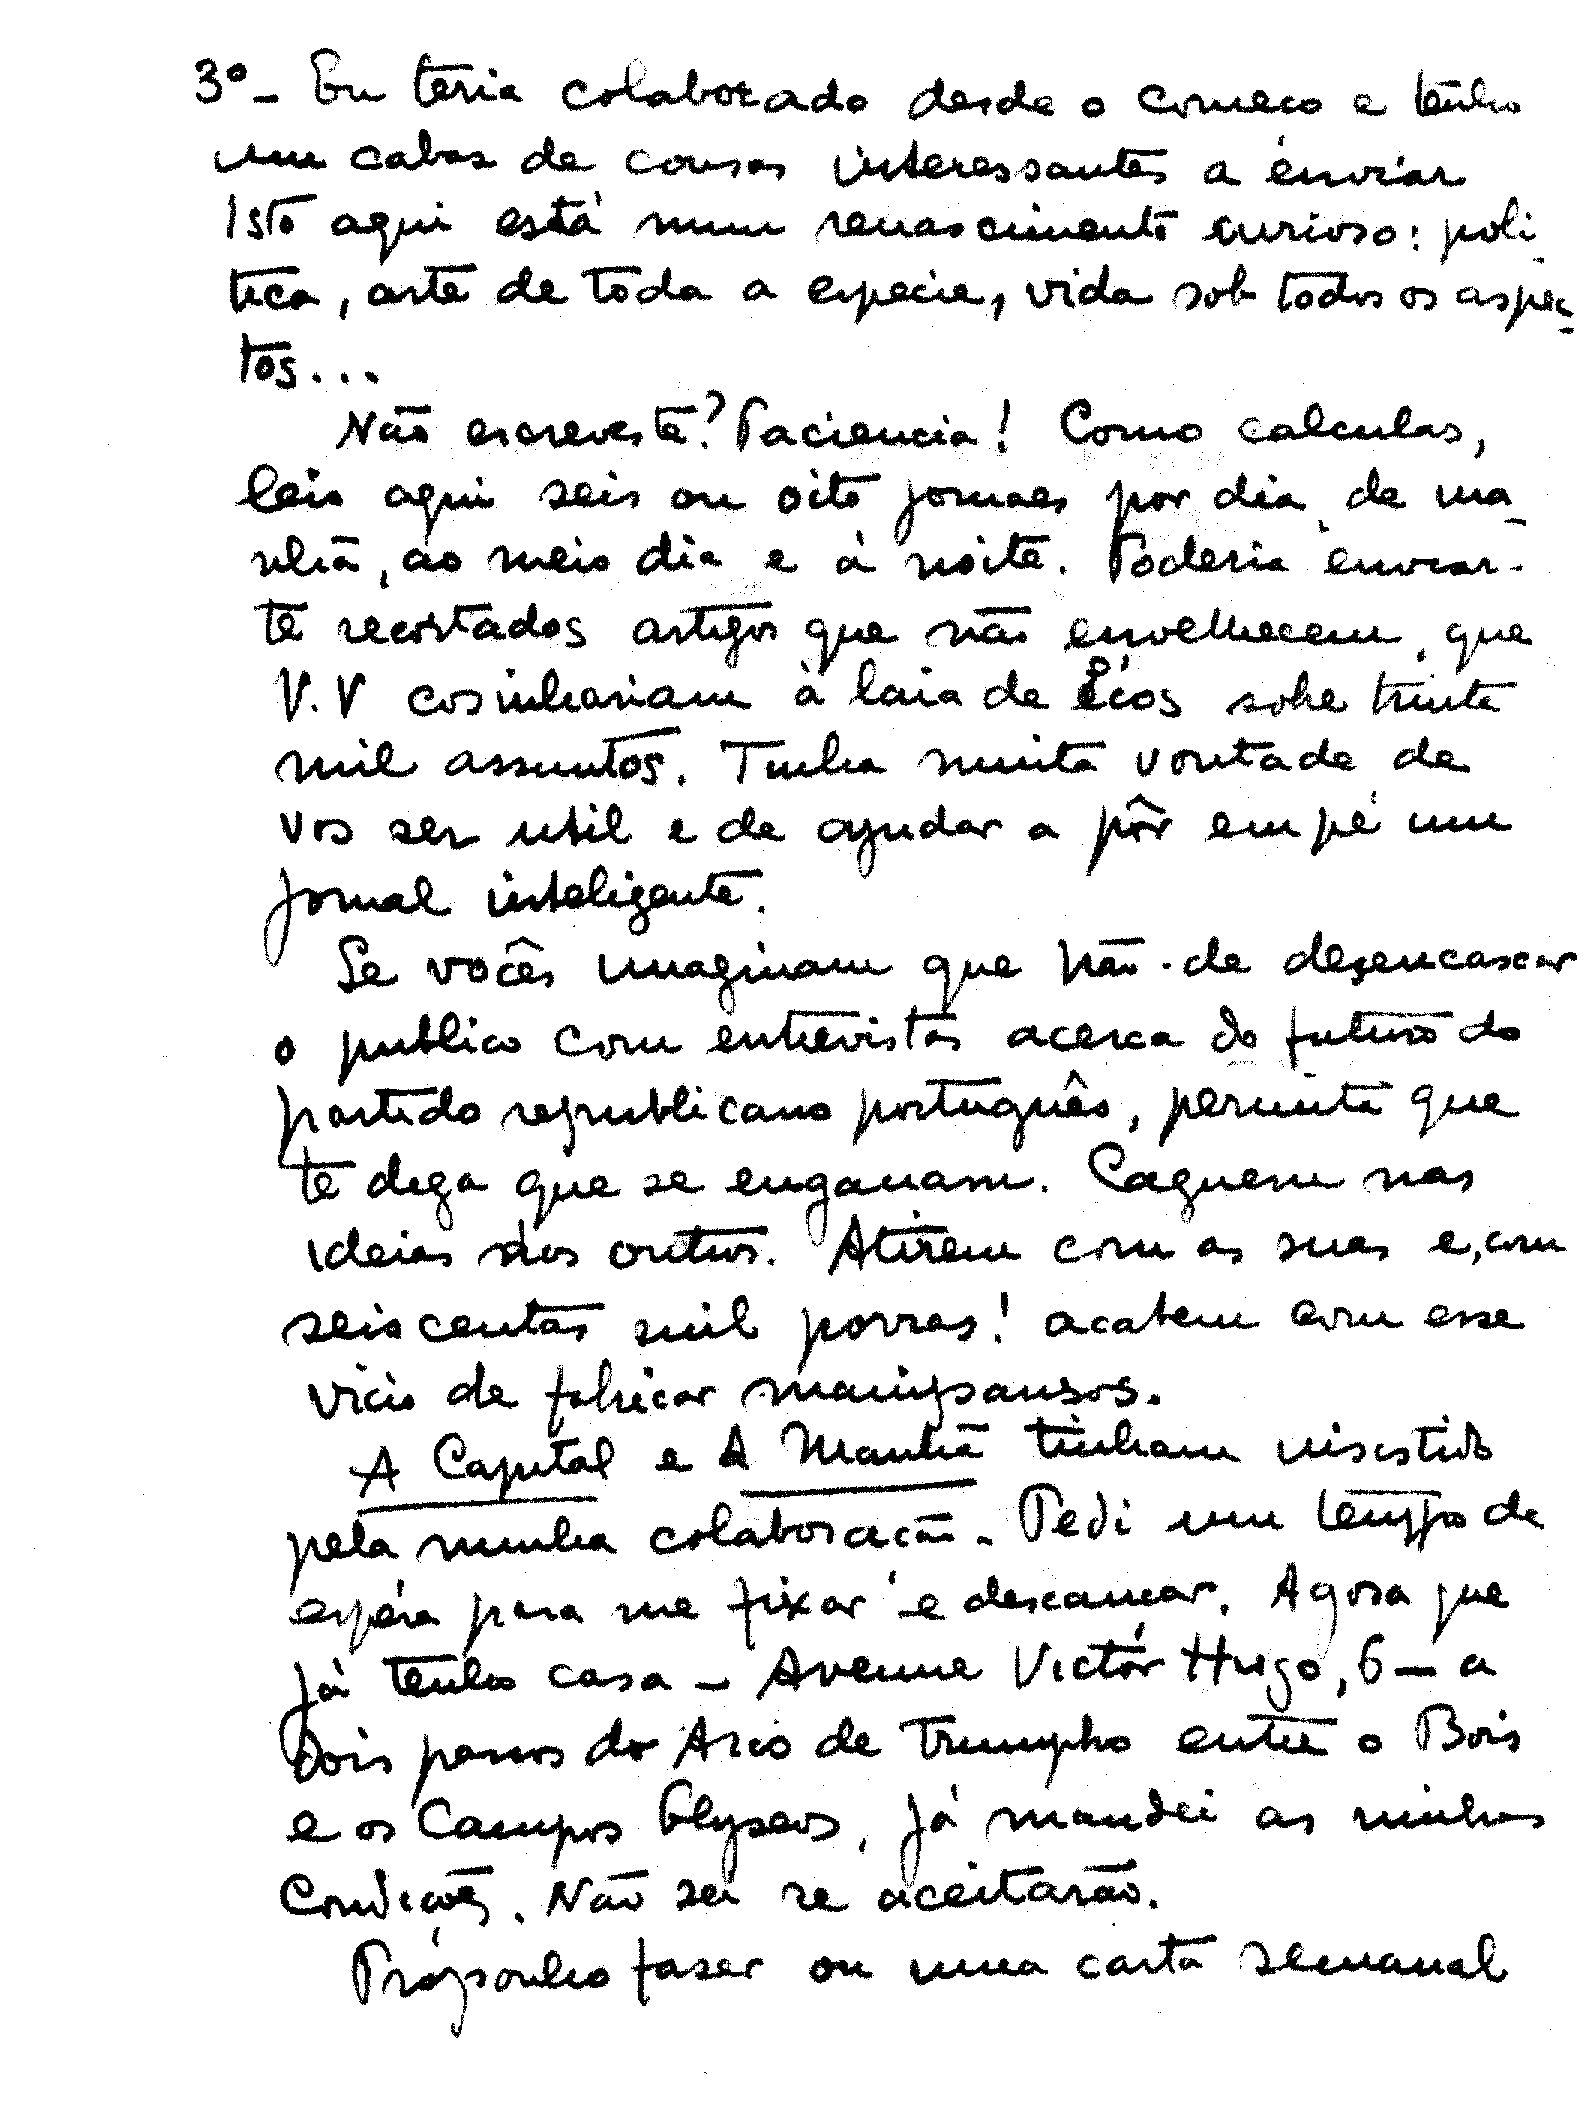 3º - Eu teria colaborado desde o começo e tenho
um cabaz de cousas interessantes a enviar
Isto aqui está num renascimento curioso: poli-
tica, arte de toda a especie, vida sob todos os aspec-
tos...
Não escreveste? Paciencia! Como calculas,
leio aqui seis ou oito jornaes por dia, de ma-
nhã, ao meio dia e á noite. Poderia enviar-
te recortados artigos que não envelhecem, que
V.V cosinhariam à laia de Écos sobre trinta
mil assuntos. Tinha muita vontade de
vos ser util e de ajudar a pôr em pé um
jornal inteligente.
Se vocês imaginam que hão-de desencascar
o publico com entrevistas acerca do futuro do
partido republicano português, permite que
te diga que se enganam. Caguem nas
ideias dos outros. Atirem com as suas e, com
seiscentas mil porras! acabem com esse
vicio de fabricar manipansos.
A Capital e A Manhã tinham insistido
pela minha colaboração. Pedi um tempo de
espéra para me fixar e descançar. Agora que
já tenho casa - Avenue Victór Hugo, 6 - a
dois passos do Arco de Triumpho entre o Bois
e os Campos Elyseos, já mandei as minhas
Condições. Não sei se aceitarão.
Proponho faser ou uma carta semanal